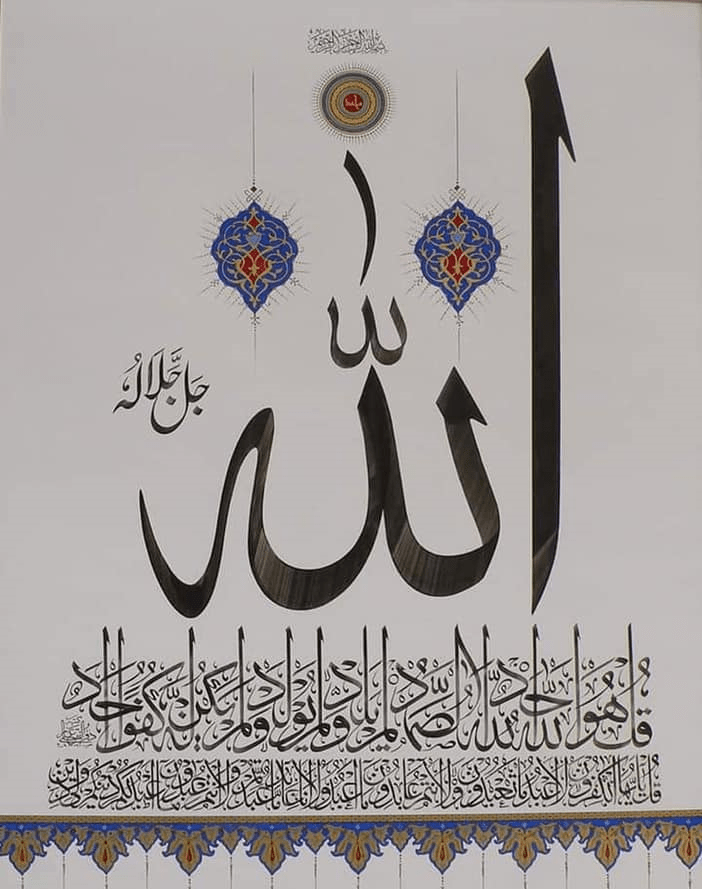 بسم الله الرحمن الرحيم
الله
جَلَّ جَلَالُهُ
قُلْ هُوَ اللّٰهُ اَحَدٌ اَللّٰهُ الصَّمَدُ لَمْ يَلِدْ وَلَمْ يُولَدْ وَلَمْ يَكُنْ لَهُ كُفُوًا اَحَدٌ
قُلْ يَا اَيُّهَا الْكَافِرُونَ لَا اَعْبُدُ مَا تَعْبُدُونَ وَلَا اَنْتُمْ عَابِدُونَ مَا اَعْبُدُ وَلَا اَنَا عَابِدٌ مَا عَبَدْتُمْ وَلَا اَنْتُمْ عَابِدُونَ مَا اَعْبُدُ لَكُمْ دِينُكُمْ وَلِيَ دِينِ